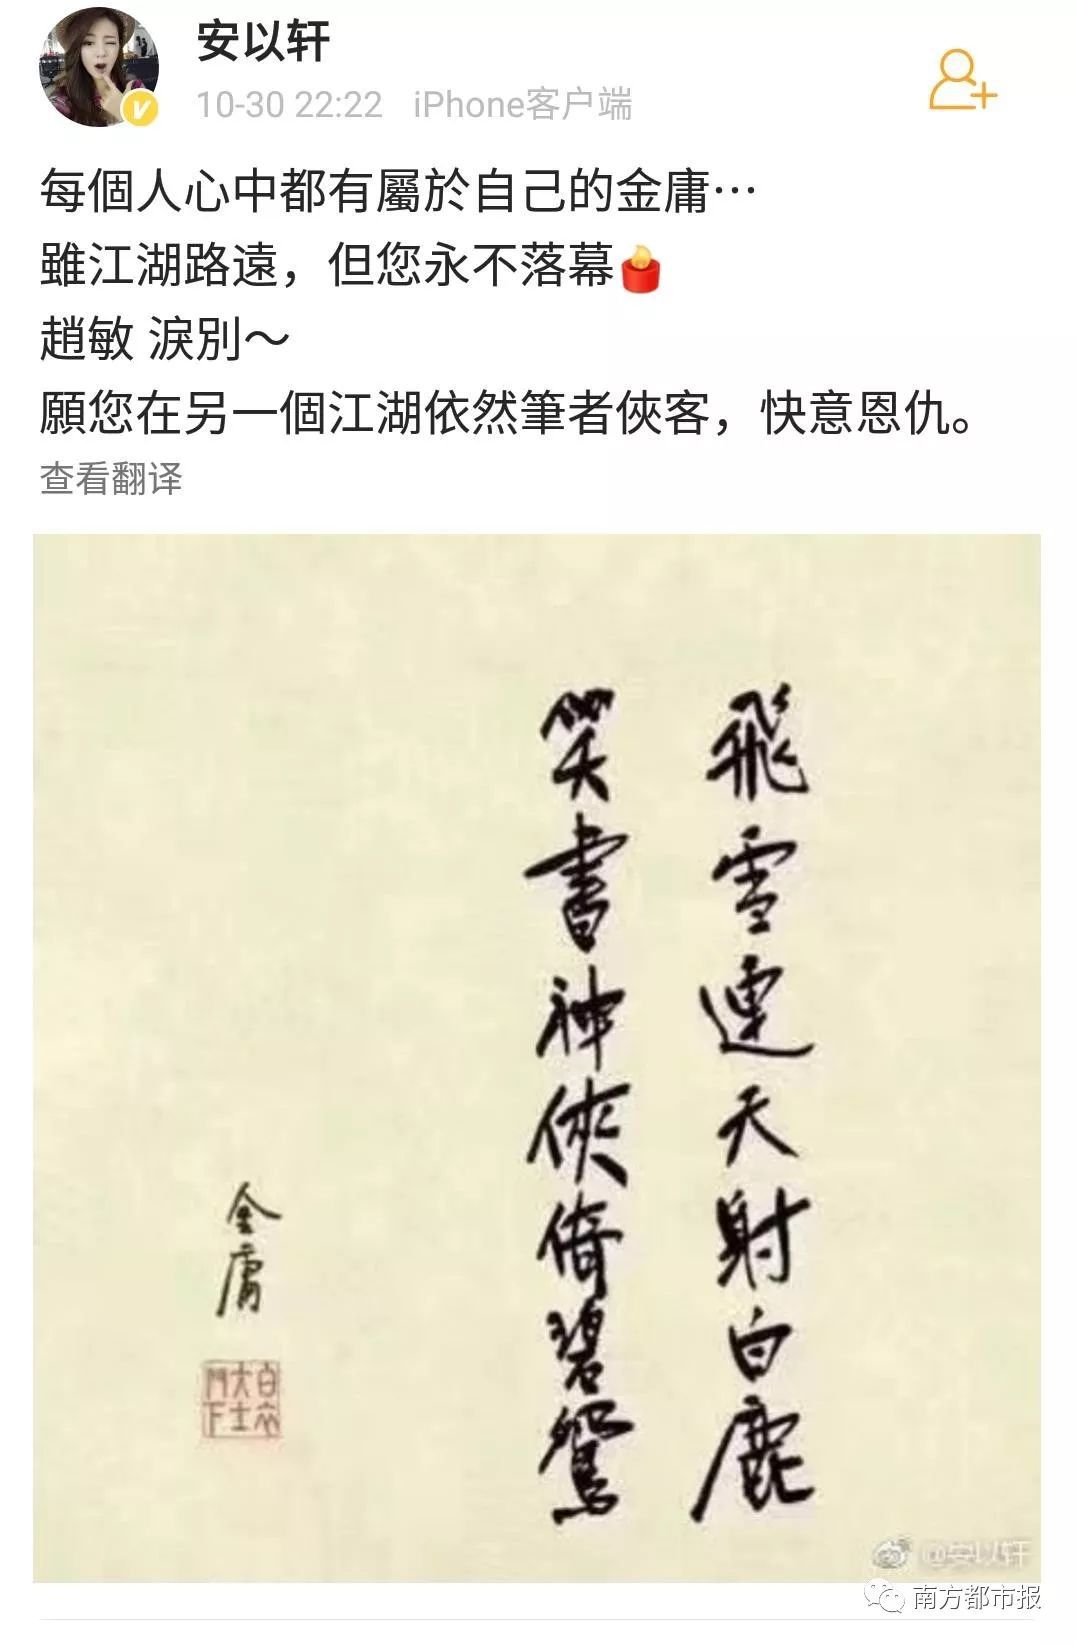 安以轩
10-30 22:22 iPhone客户端
每個人心中都有屬於自己的金庸…
雖江湖路遠，但您永不落幕
趙敏 淚別～
願您在另一個江湖依然筆者俠客，快意恩仇。
查看翻译
飛雪連天射白鹿
笑書神俠倚碧鴛
金庸
白衣
大士
門下
@安以轩
南方都市报